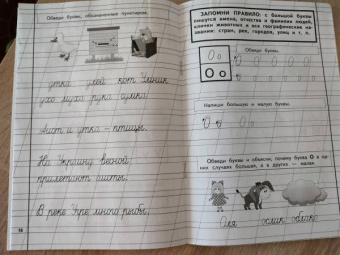 Обведи буквы, обозначенные пунктиром.
утка улей кот Умник
ухо муха рука сумка
Аист и утка – птицы.
На Украину весной
прилетают аисты.
В реке Уре много рыбы.
ЗАПОМНИ ПРАВИЛО: с большой буквы
пишутся имена, отчества и фамилии людей,
клички животных и все географические на-
звания: стран, рек, городов, улиц и т. п.
Обведи буквы.
Оо
Оо
Напиши большую и малую буквы.
О о
Обведи буквы и объясни, почему буква О в од-
них случаях большая, а в других — малая.
Оля ослик облако